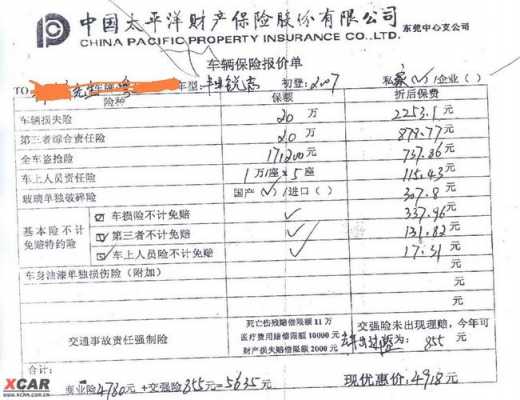 中国太平洋财产保险股份有限公司 东莞中心支公司
CHINA PACIFIC PROPERTY INSURANCE CO.,LTD.
车辆保险报价单
TO 车型: 锐志 初登: 2007 私家(✓)/企业( )
险种 保额 折后保费
车辆损失险 20万 2253.1元
第三者综合责任险 20万 878.77元
全车盗抢险 171200元 737.86元
车上人员责任险 1万/座*5座 115.43元
玻璃单独破碎险 国产(✓)/进口( ) 307.8元
基本险不计免赔特约险
车损险不计免赔 ✓ 337.96元
第三者不计免赔 ✓ 131.82元
车上人员险不计免赔 ✓ 17.31元
车身油漆单独损伤险(附加) 元
元
元
交通事故责任强制险
死亡伤残赔偿限额11万
医疗费用赔偿限额10000元
财产损失赔偿限额2000元
交强险未出现理赔,今年可
为: 855元
合计:
商业险4780元+交强险855元=5635元 现优惠价:4918元
XCAR
WWW.XCAR.COM.CN